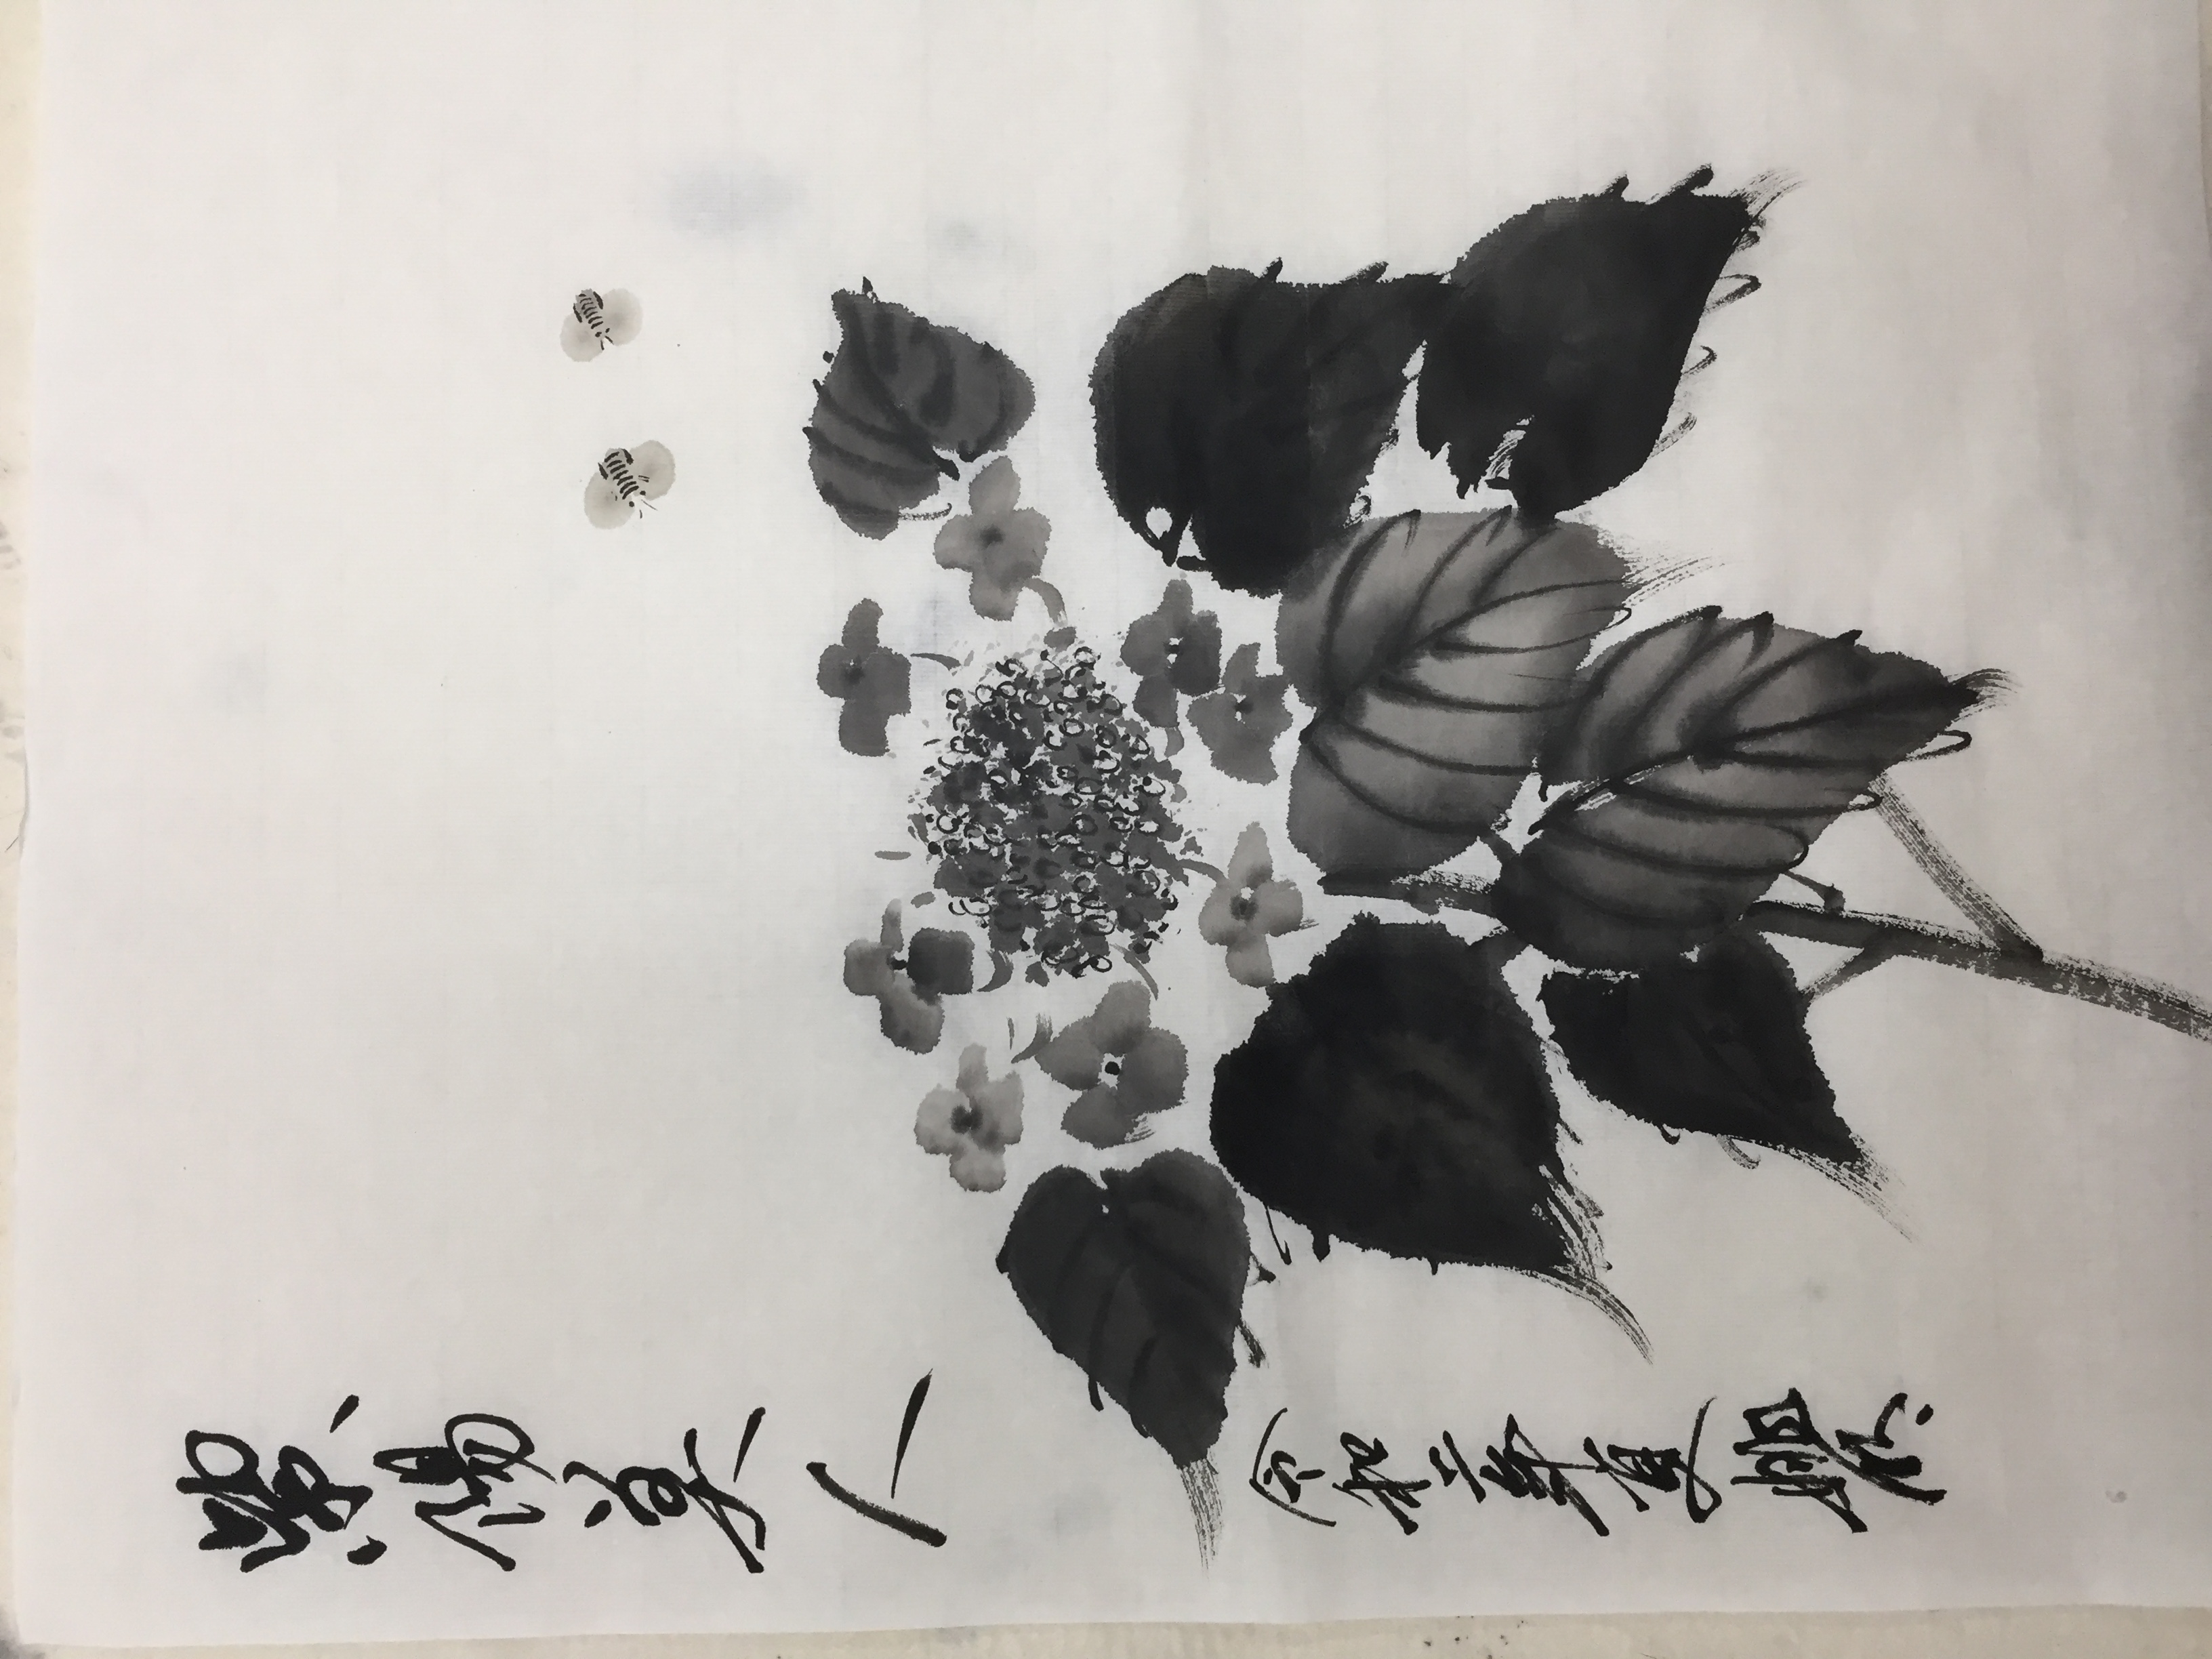 紫陽美人
令和二年夏